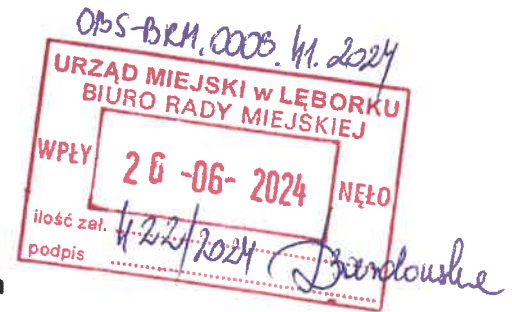 OBS-BRM.0006.41.2024
URZĄD MIEJSKI W LĘBORKU
BIURO RADY MIEJSKIEJ
WPŁY 26 -06- 2024 NĘŁO
ilość zał.
422/2024
podpis